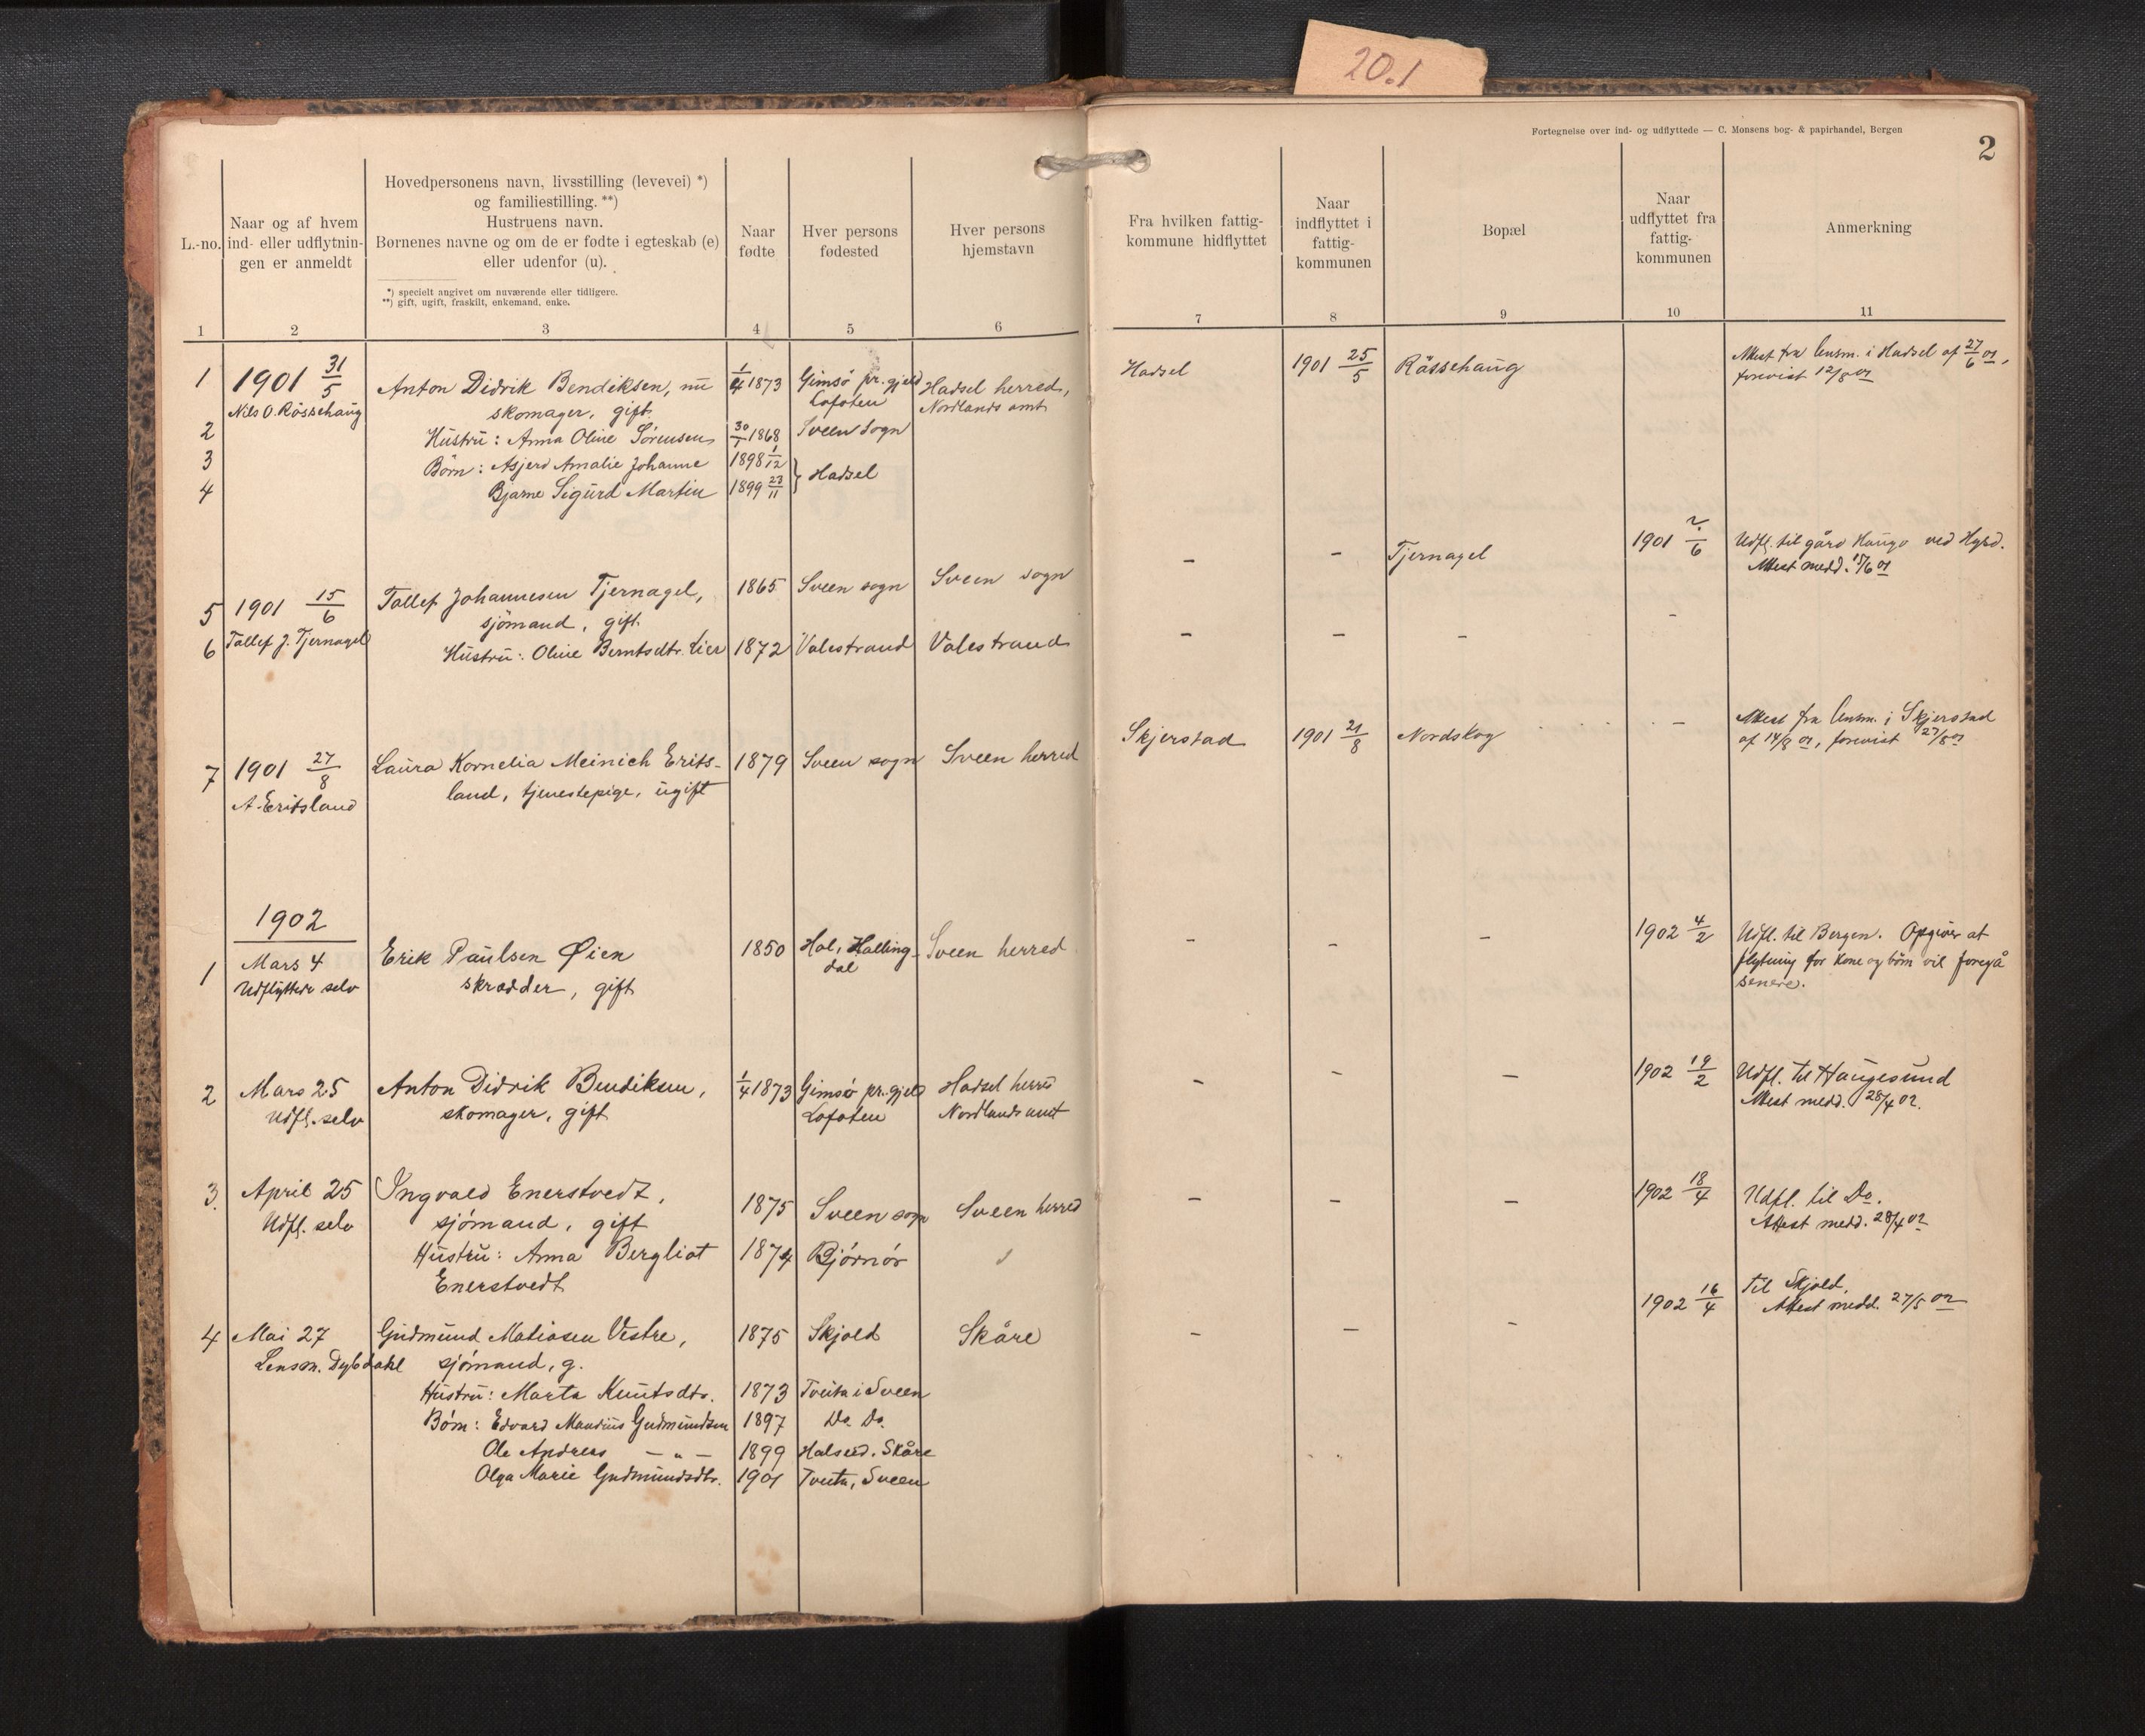 20.1
Fortegnelse over ind- og udflyttede — C. Monsens bog- & papirhandel, Bergen
2
L.-no.
Naar og af hvem
ind- eller udflytnin-
gen er anmeldt
Hovedpersonens navn, livsstilling (levevei) *)
og familiestilling. **)
Hustruens navn.
Børnenes navne og om de er fødte i egteskab (e)
eller udenfor (u).
*) specielt angivet om nuværende eller tidligere.
**) gift, ugift, fraskilt, enkemand, enke.
Naar
fødte
Hver persons
fødested
Hver persons
hjemstavn
Fra hvilken fattig-
kommune hidflyttet
Naar
indflyttet i
fattig-
kommunen
Bopæl
Naar
udflyttet fra
fattig-
kommunen
Anmerkning
1 2 3 4 5 6 7 8 9 10 11
1 1901 31/5 Anton Didrik Bendiksen, nu 1/4 1873 Gimsø pr.gjeld Hadsel herred, Hadsel 1901 25/5 Rässehaug Attest fra lensm. i Hadsel af 27/6 01,
Nils O. Rössehaug skomager, gift Lofoten Nordlands amt forevist 12/8 01
2 Hustru: Anna Oline Sørensen 30/1 1868 Sveen sogn
3 Børn: Asjerd Amalie Johanne 1898 1/12 } Hadsel
4 Bjarne Sigurd Martin 1899 23/11
5 1901 15/6 Tollef Johannesen Tjernagel, 1865 Sveen sogn Sveen sogn – – Tjernagel 1901 /6 Udfl. til gård Hauga ved Hgsd.
sjömand, gift Attest medd. 15/6 01
6 Tallef J. Tjernagel Hustru: Oline Berntsdtr. Lier 1872 Valestrand Valestrand – – – –
7 1901 27/8 Laura Kornelia Meinich Erits- 1879 Sveen sogn Sveen herred Skjerstad 1901 21/8 Nordskog – Attest fra lensm. i Skjerstad
A. Eritsland land, tjenestepige, ugift af 14/8 01, forevist 27/8 01
1902
1 Mars 4 Erik Paulsen Øien 1850 Hol, Halling- Sveen herred – – – 1902 4/2 Udfl. til Bergen. Opgiver at
Udflyttede selv skrædder, gift dal flytning for kone og børn vil foregå
senere.
2 Mars 25 Anton Didrik Bendiksen, 1/4 1873 Gimsø pr.gjeld Hadsel herred – – – 1902 19/2 Udfl. til Haugesund
Udfl. selv skomager, gift Lofoten Nordlands amt Attest medd. 28/4 02.
3. April 25 Ingvald Enerstvedt, 1875 Sveen sogn Sveen herred – – – 1902 18/4 Udfl. til Do.
Udfl. selv sjömand, gift Attest medd. 28/4 02
Hustru: Anna Bergliot 1874 Bjørnør
Enerstvedt
4 Mai 27 Gudmund Matiasen Vestre, 1875 Skjold Skåre – – – 1902 16/4 Til Skjold,
Lensm. Dybdahl sjómand, g. Attest medd. 27/5 02
Hustru: Marta Knutsdtr. 1873 Tveita i Sveen
Børn: Edvard Mandius Gudmundsen 1897 Do. Do.
Ole Andreas – „ – 1899 Halseid. Skåre
Olga Marie Gudmundsdtr. 1901 Tveita, Sveen